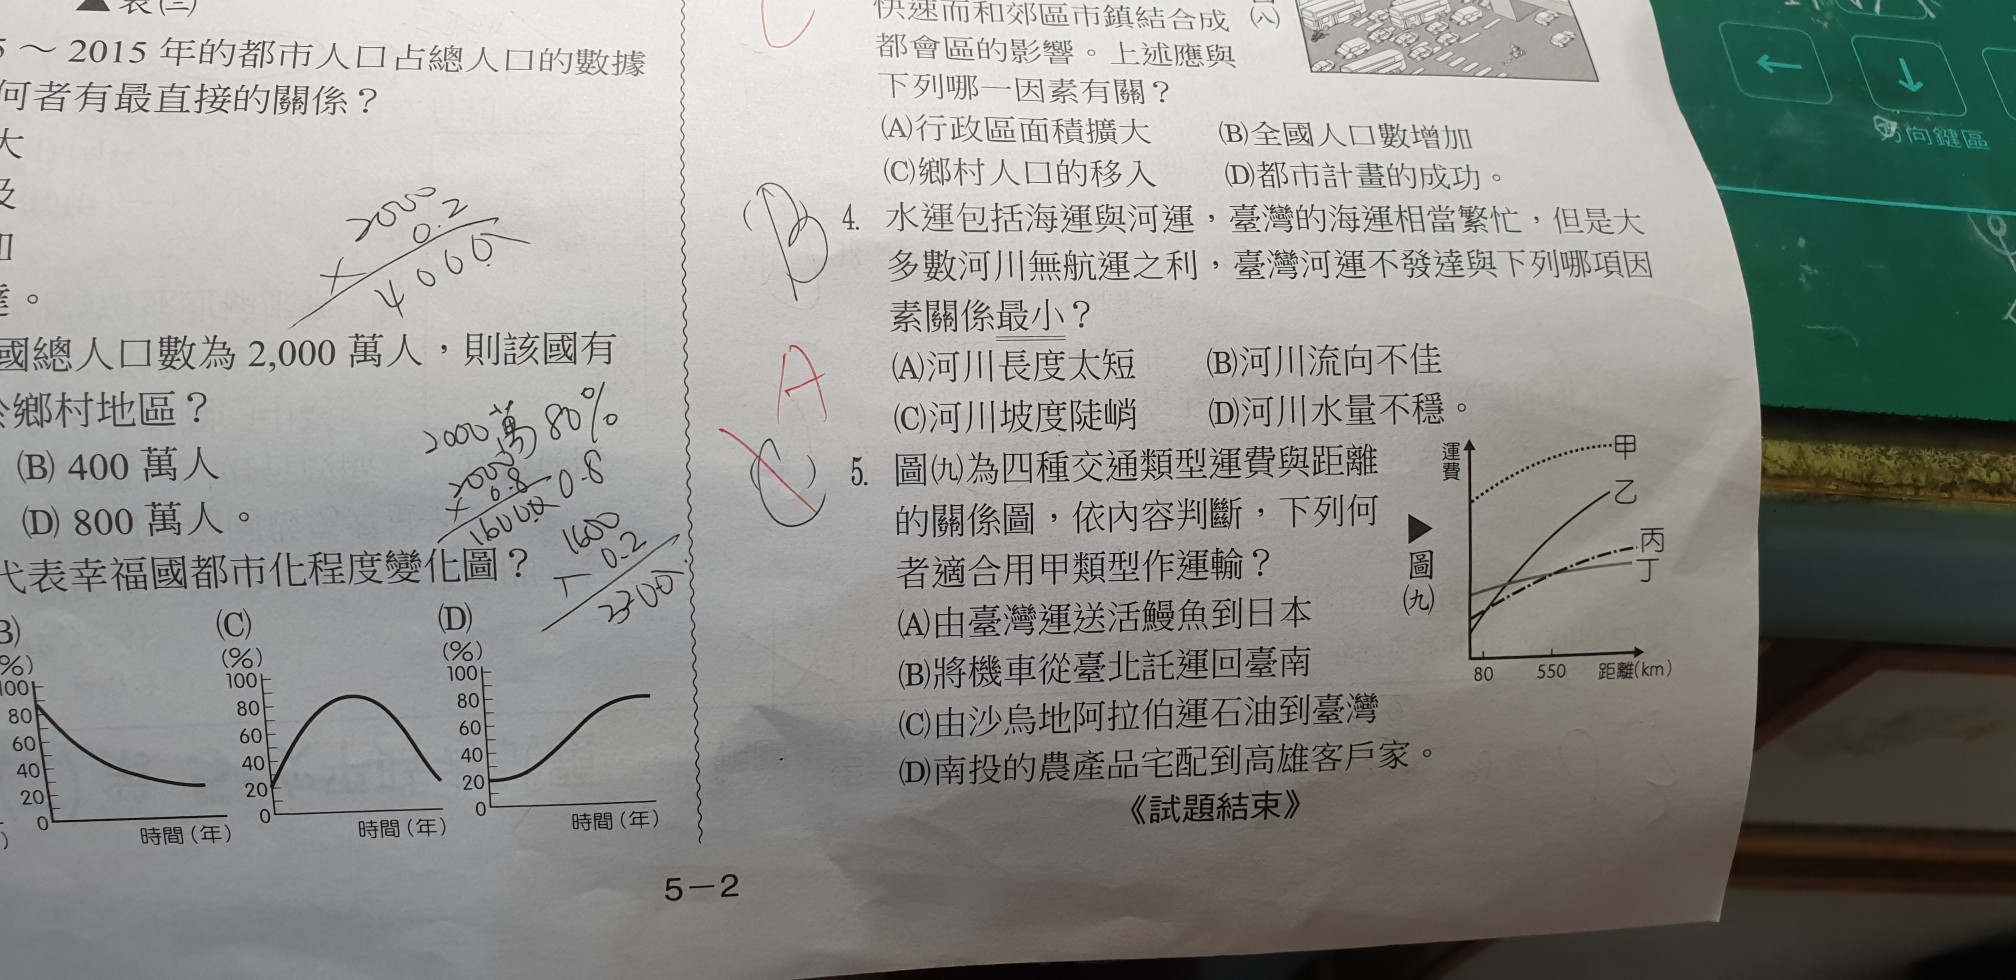 ▲表(三)
5～2015年的都市人口占總人口的數據
何者有最直接的關係？
大
及
達。
2000
0.2
4000
國總人口數為2,000萬人，則該國有
於鄉村地區？
(B) 400 萬人
(D) 800 萬人。
2000萬 80%
2000
× 0.8
0.8
1600
1600
0.2
代表幸福國都市化程度變化圖？
B)
(%)
100
80
60
40
20
0
時間(年)
(C)
(%)
100
80
60
40
20
0
時間(年)
(D)
(%)
100
80
60
40
20
0
時間(年)
快速而和郊區市鎮結合成
都會區的影響。上述應與
下列哪一因素有關？
(八)
(A)行政區面積擴大 (B)全國人口數增加
(C)鄉村人口的移入 (D)都市計畫的成功。
(B) 4. 水運包括海運與河運，臺灣的海運相當繁忙，但是大
多數河川無航運之利，臺灣河運不發達與下列哪項因
素關係最小？
(A)河川長度太短 (B)河川流向不佳
(C)河川坡度陡峭 (D)河川水量不穩。
A
(C) 5. 圖(九)為四種交通類型運費與距離
的關係圖，依內容判斷，下列何
者適合用甲類型作運輸？
(A)由臺灣運送活鰻魚到日本
(B)將機車從臺北託運回臺南
(C)由沙烏地阿拉伯運石油到臺灣
(D)南投的農產品宅配到高雄客戶家。
▶圖(九)
運費
甲
乙
丙
丁
80 550 距離(km)
《試題結束》
5－2
←
↓
方向鍵區